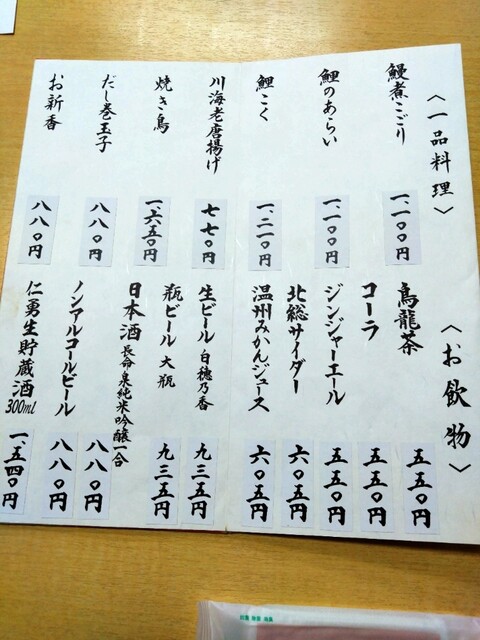 〈一品料理〉
鰻煮こごり 一、一〇〇円
鯉のあらい 一、一〇〇円
鯉こく 一、二一〇円
川海老唐揚げ 七七〇円
焼き鳥 一、六五〇円
だし巻玉子 八八〇円
お新香 八八〇円
〈お飲物〉
烏龍茶 五五〇円
コーラ 五五〇円
ジンジャーエール 五五〇円
北総サイダー 六〇五円
温州みかんジュース 六〇五円
生ビール 白穂乃香 九三五円
瓶ビール 大瓶 九三五円
日本酒 長命泉純米吟醸一合 八八〇円
ノンアルコールビール 八八〇円
仁勇生貯蔵酒 300ml 一、五四〇円